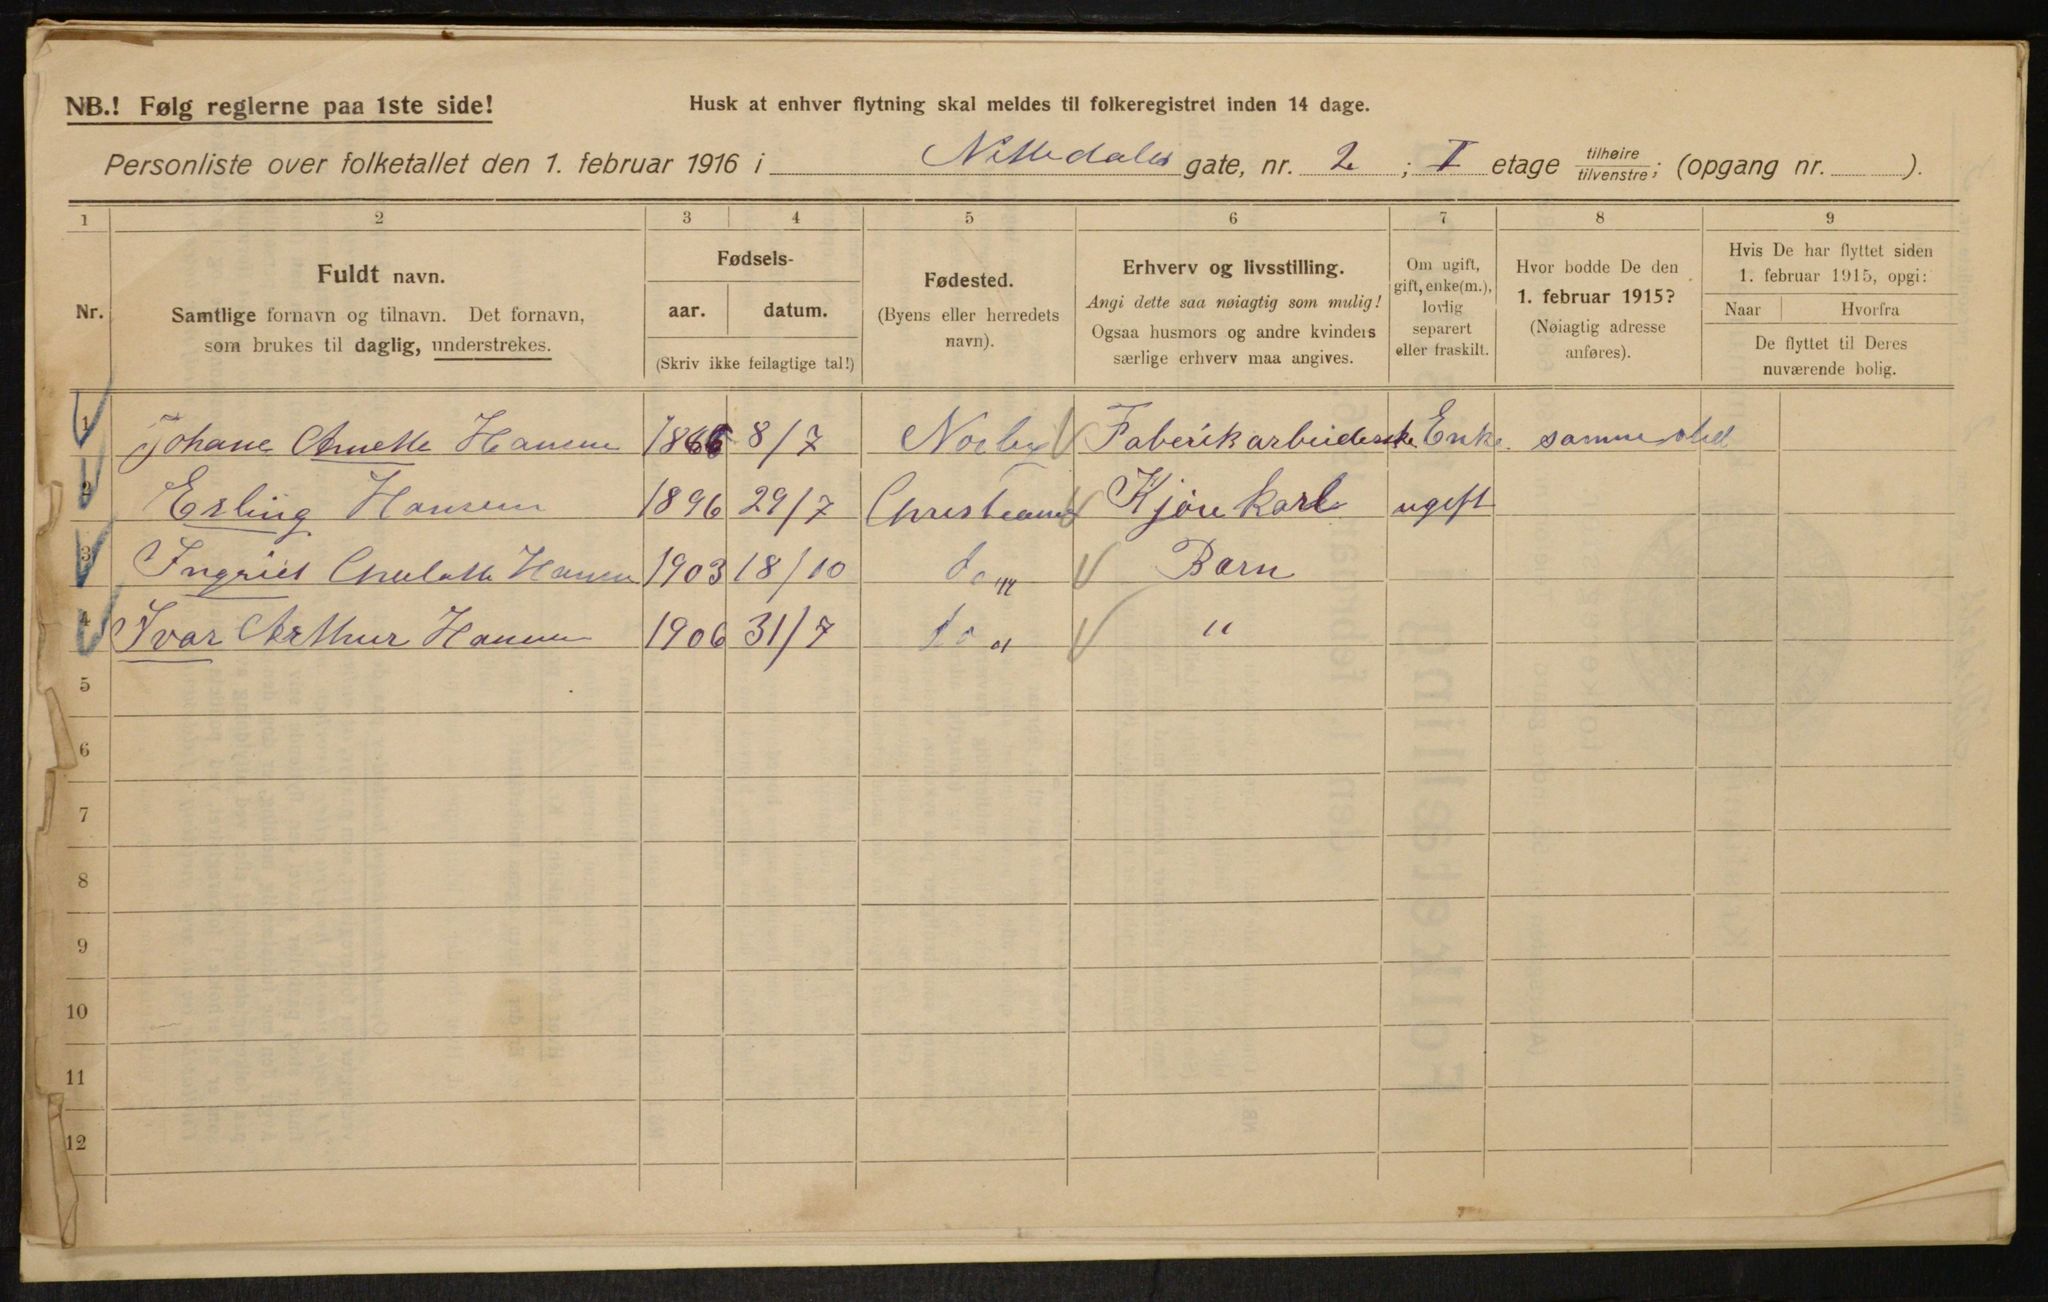 NB.! Følg reglerne paa 1ste side!
Husk at enhver flytning skal meldes til folkeregistret inden 14 dage.
Personliste over folketallet den 1. februar 1916 i Nittedals gate, nr. 2 ; I etage tilhøire tilvenstre; (opgang nr. ).
1 2 3 4 5 6 7 8 9
Nr.
Fuldt navn.
Samtlige fornavn og tilnavn. Det fornavn,
som brukes til daglig, understrekes.
Fødsels-
aar. datum.
(Skriv ikke feilagtige tal!)
Fødested.
(Byens eller herredets
navn).
Erhverv og livsstilling.
Angi dette saa nøiagtig som mulig!
Ogsaa husmors og andre kvinders
særlige erhverv maa angives.
Om ugift,
gift, enke(m.),
lovlig
separert
eller fraskilt.
Hvor bodde De den
1. februar 1915?
(Nøiagtig adresse
anføres).
Hvis De har flyttet siden
1. februar 1915, opgi:
Naar Hvorfra
De flyttet til Deres
nuværende bolig.
1 Johane Anette Hansen 1866 8/7 Fabrikarbeiderske Enke samme sted
2 Erling Hansen 1896 29/7 Christiania Kjørekarl ugift
3 Ingrid Hansen 1903 18/10 do " Barn
4 Ivar Arthur Hansen 1906 31/7 do " "
5
6
7
8
9
10
11
12